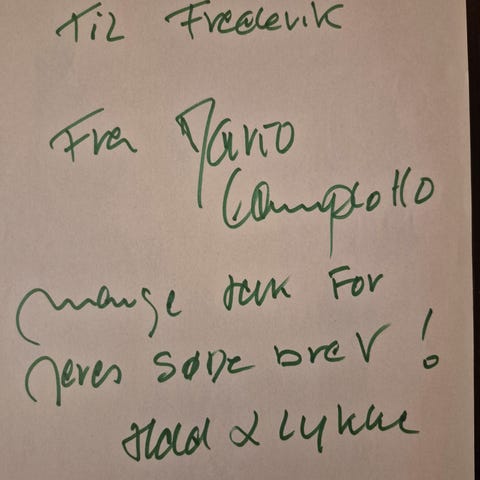 Til Frederik
Fra Mario
Campotto
mange tak For
jeres søde brev!
Held & lykke